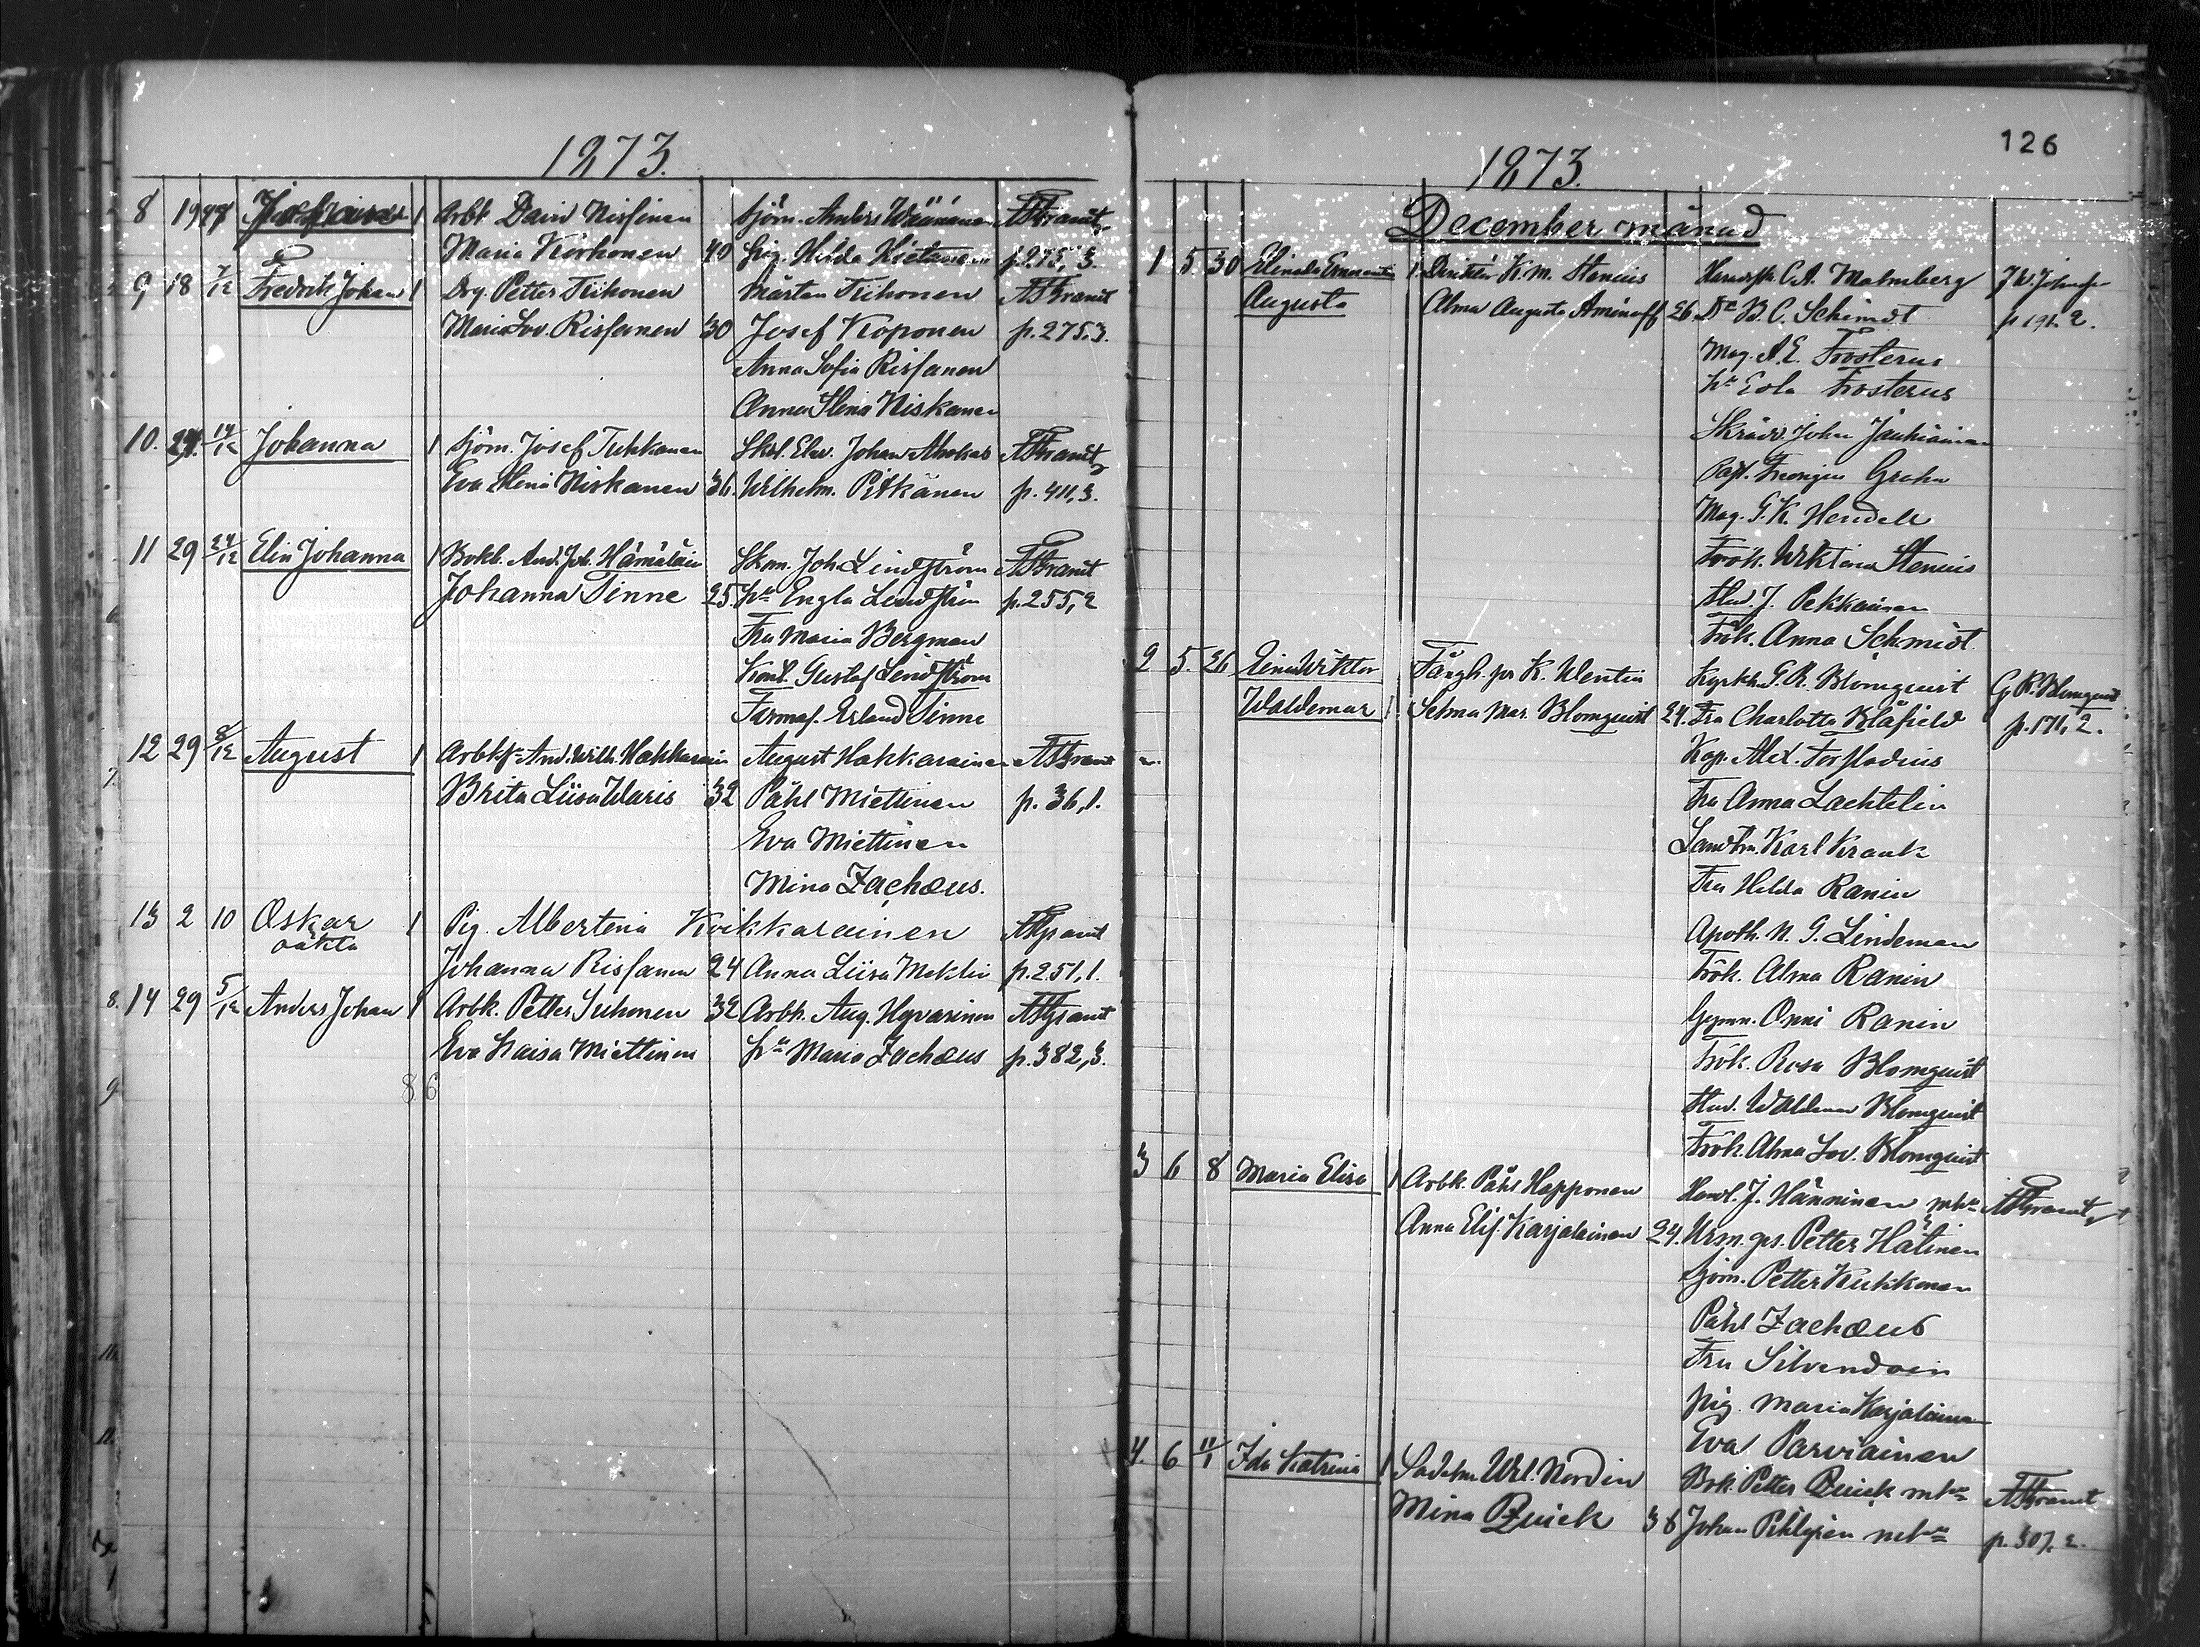 1873.
8 19 Arbk David Nissinen Sjöm. Anders Wäänänen AGranit
Maria Korhonen 40 Pig. Hilda Hietanen p. 275, 3.
9 18 7/12 Fredrik Johan 1 Drg. Petter Tiihonen Mårten Tiihonen AGranit
Maria Lov. Rissanen 30 Josef Koponen p. 275.3.
Anna Sofia Rissanen
Anna Helena Niskanen
10. 24. 14/12 Johanna 1 Sjöm. Josef Tukkanen Johan Ahokas AGranit
Eva Helena Niskanen 36. Wilhelm. Pitkänen p. 411,3.
11 29 24/12 Elin Johanna 1 Bokb. And. Joh. Hämäläin Skom. Joh Lindström AGranit
Johanna Sinne 25. hu Engla Lindström p. 255,2
Fru Maria Bergman
Gustaf Lindström
Farmas. Erland Sinne
12 29 8/12 August 1 Arbk And. Wilh. Hakkarain August Hakkarainen AGranit
Brita Liisa Waris 32 Påhl Miettinen p. 36,1.
Eva Miettinen
Mina Zachæus.
13 2 10 Oskar 1 Pig. Albertina Kvikkarainen AGranit
oäkta
Johanna Rissanen 24 Anna Liisa Meklin p. 251,1.
14 29 5/12 Anders Johan 1 Arbk. Petter Suhonen 32 Arbk. Aug. Hyvärinen AGranit
Eva Kaisa Miettinen hu Maria Zachæus p. 382,3.
86
126
1873.
December månad
1 5 30 1 K. M. Stenius C. A. Malmberg
Augusta Alma Augusta Aminoff 26 B. C. Schmidt p 191. 2.
Mag. A. E. Frosterus
hu Eola Frosterus
Skräd. John Jauhiainen
Kapt. Grahn
Mag. G. K. Hendell
Frök. Wiktoria Stenius
Stud. J. Pekkarinen
Frök. Anna Schmidt.
2 5. 26 Eino Wiktor Fångh. K. Wentin Kyrkh. G. R. Blomquist G. R. Blomquist
Waldemar 1 Selma Mar. Blomquist 24. Fru Charlotta Blåfield p. 171, 2.
Kap. Alex. Forstadius
Fru Anna Lachtelin
Landtm. Karl Krank
Fru Hilda Ranin
Apoth. N. G. Lindeman
Frök. Alma Ranin
Gymn. Onni Ranin
Frök. Rosa Blomquist
Stud. Waldemar Blomquist
Frök. Alma Lov. Blomquist
3 6 8 Maria Elisa 1 Arbk. Påhl Happonen Handl. J. Hänninen mhu AGranit
Anna Elis. Karjalainen 24. Petter Hätinen
Sjöm. Petter Kukkonen
Påhl Zachæus
Fru Silvendoin
Pig. Maria Karjalainen
Eva Parviainen
4. 6 11/1 Ida Katrina 1 Sadelm. Wil. Nordin Petter Quick mhu AGranit
Mina Quick 36 Johan Pihlgren mhu p. 307. 2.